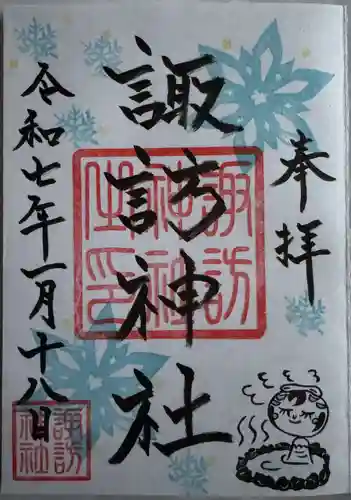 奉拝
諏訪神社
令和七年一月十八日
諏訪
神社
諏訪
神社